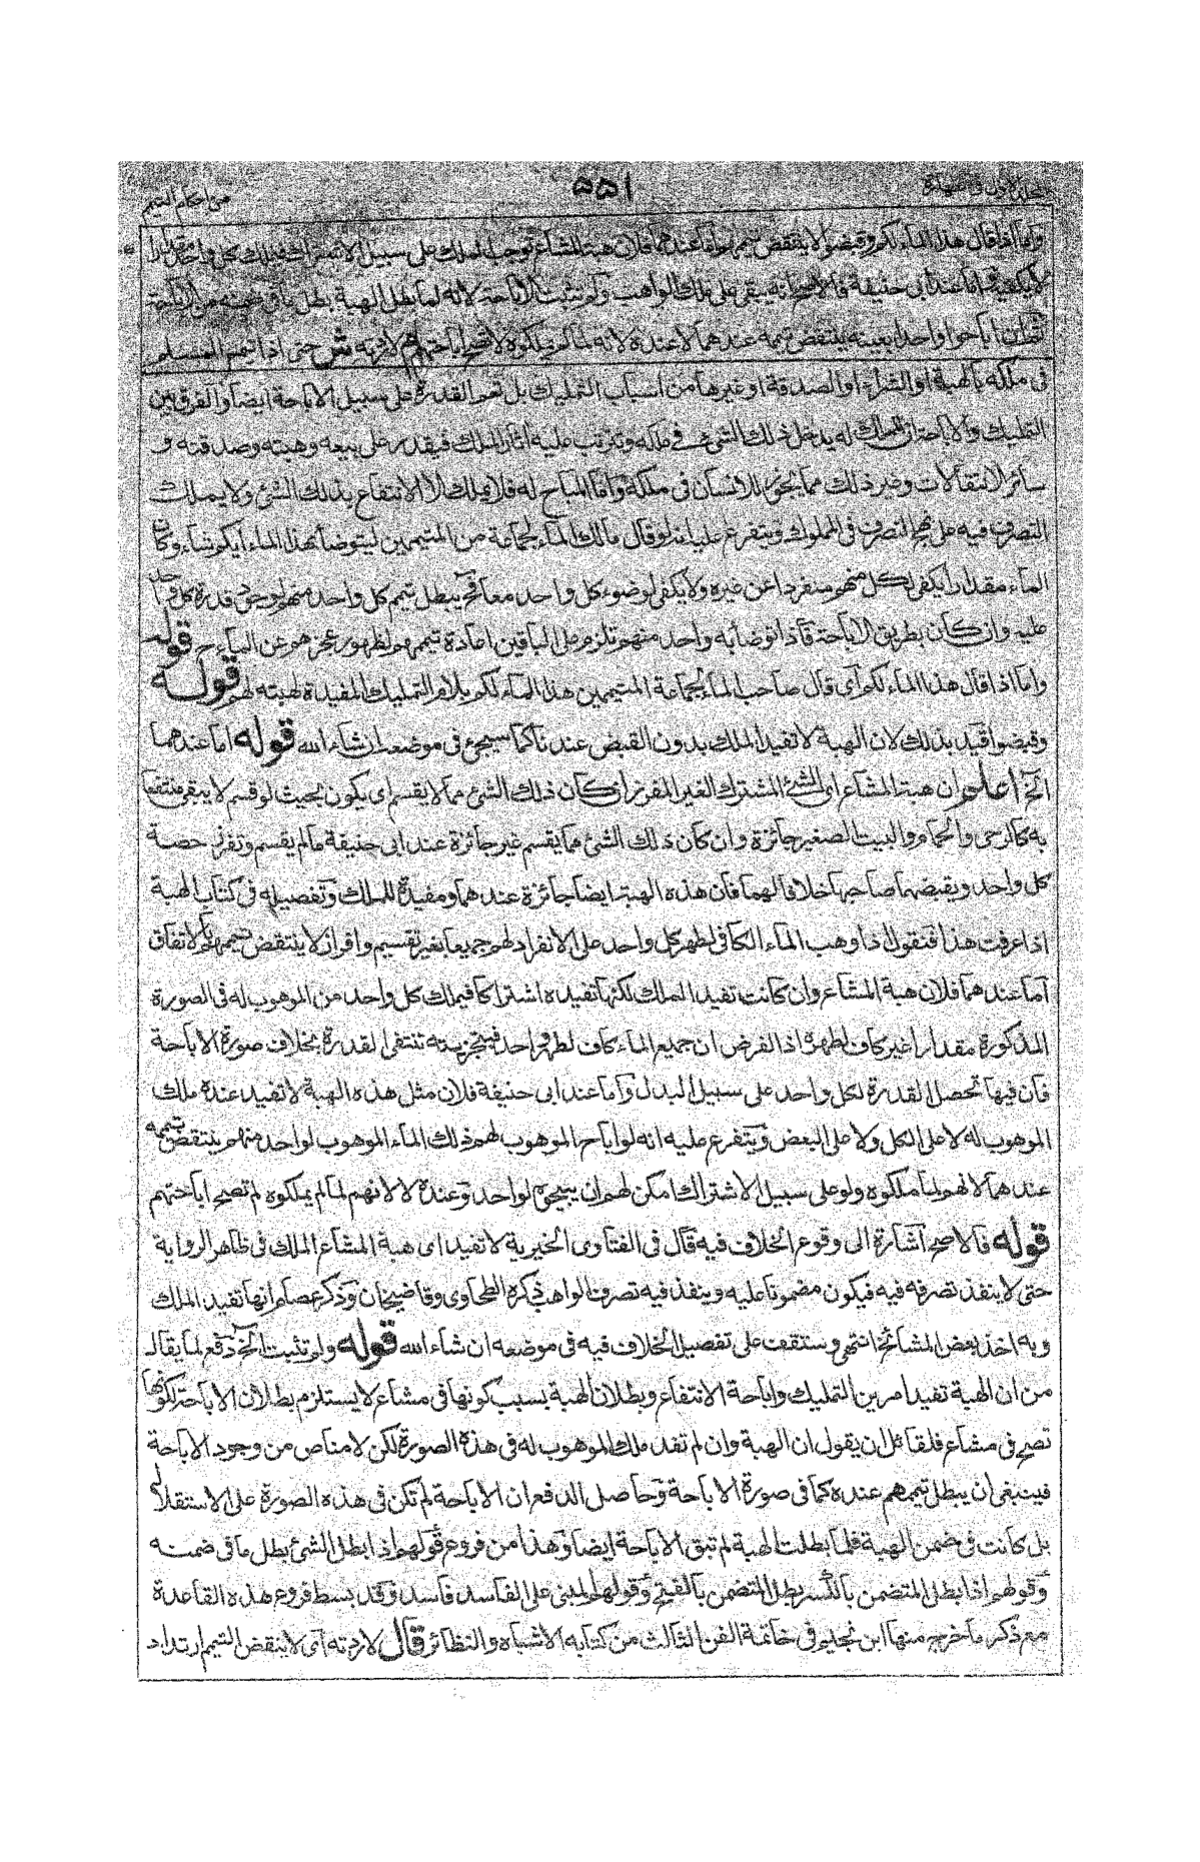 من احكام التيمم
۵۵۱
واما اذا قال هذا الماء لكم وقبضوا لا ينتقض تيممهم اما عندهما فلان هبة المشاع توجب الملك على سبيل الاشتراك فيملك كل واحد مقدارا
لا يكفيه واما عند ابى حنيفة فالاصح انه يبقى على ملك الواهب ولم تثبت الاباحة لانه لما بطل الهبة بطل ما فى ضمنه من الاباحة
ثم ان اباحوا واحدا بعينه ينتقض تيممه عندهما لا عنده لانه لما لم يملكوه لا تصح اباحتهم م لا ردته ش حتى اذا تيمم المسلم
فى ملكه بالهبة او الشراء او الصدقة او غيرها من اسباب التمليك بل تعم القدرة على سبيل الاباحة ايضا والفرق بين
التمليك والاباحة ان المملك له يدخل ذلك الشئ فى ملكه وتترتب عليه اثار الملك فيقدر على بيعه وهبته وصدقته و
سائر الانتقالات وغير ذلك مما يجوز للانسان فى ملكه واما المباح له فلا يملك الا الانتفاع بذلك الشئ ولا يملك
التصرف فيه على نهج التصرف فى المملوك ويتفرع عليه انه لو قال مالك الماء لجماعة من المتيممين ليتوضأ بهذا الماء ايكم شاء وكان
الماء مقدارا يكفى لكل منهم منفردا عن غيره ولا يكفى لوضوء كل واحد معا فح يبطل تيمم كل واحد منهم لوجود قدرة كل واحد
عليه وان كان بطريق الاباحة فاذا توضأ به واحد منهم تلزم على الباقين اعادة تيممهم لظهور عجزهم عن الماء ح قوله
واما اذا قال هذا الماء لكم اى قال صاحب الماء لجماعة المتيممين هذا الماء لكم بلام التمليك المفيدة لهبته لهم قوله
وقبضوا قيد بذلك لان الهبة لا تفيد الملك بدون القبض عندنا كما سيجئ فى موضعه ان شاء الله قوله اما عندهما
الخ اعلم ان هبة المشاع اى الشئ المشترك الغير المفرز ان كان ذلك الشئ مما لا يقسم اى يكون بحيث لو قسم لا يبقى منتفعا
به كالرحى والحمام والبيت الصغير جائزة وان كان ذلك الشئ مما يقسم غير جائزة عند ابى حنيفة ما لم يقسم وتفرز حصة
كل واحد ويقبضها صاحبها خلافا لهما فان هذه الهبة ايضا جائزة عندهما ومفيدة للملك وتفصيله فى كتاب الهبة
اذا عرفت هذا فنقول اذا وهب الماء الكافى لطهر كل واحد على الانفراد لهم جميعا بغير تقسيم وافراز لا ينتقض تيممهم بالاتفاق
اما عندهما فلان هبة المشاع وان كانت تفيد الملك لكنها تفيده اشتراكا فيملك كل واحد من الموهوب له فى الصورة
المذكورة مقدارا غير كاف لطهره اذ الفرض ان جميع الماء كاف لطهر واحد فبتجزيته تنتفى القدرة بخلاف صورة الاباحة
فان فيها تحصل القدرة لكل واحد على سبيل البدل واما عند ابى حنيفة فلان مثل هذه الهبة لا تفيد عنده ملك
الموهوب له لا على الكل ولا على البعض ويتفرع عليه انه لو اباح الموهوب لهم ذلك الماء الموهوب لواحد منهم ينتقض تيممه
عندهما لانهم لما ملكوه ولو على سبيل الاشتراك امكن لهم ان يبيحوه لواحد وعنده لا لانهم لما لم يملكوه لم تصح اباحتهم
قوله فالاصح اشارة الى وقوع الخلاف فيه قال فى الفتاوى الخيرية لا تفيد اى هبة المشاع الملك فى ظاهر الرواية
حتى لا ينفذ تصرفه فيه فيكون مضمونا عليه وينفذ فيه تصرف الواهب ذكره الطحاوى وقاضيخان وذكر عصام انها تفيد الملك
وبه اخذ بعض المشائخ انتهى وستقف على تفصيل الخلاف فيه فى موضعه ان شاء الله قوله ولم تثبت الخ دفع لما يقال
من ان الهبة تفيد امرين التمليك واباحة الانتفاع وبطلان الهبة بسبب كونها فى مشاع لا يستلزم بطلان الاباحة لكونها
تصح فى مشاع فلقائل ان يقول ان الهبة وان لم تفد ملك الموهوب له فى هذه الصورة لكن لا مناص من وجود الاباحة
فينبغى ان يبطل تيممهم عنده كما فى صورة الاباحة وحاصل الدفع ان الاباحة لم تكن فى هذه الصورة على الاستقلال
بل كانت فى ضمن الهبة فلما بطلت الهبة لم تبق الاباحة ايضا وهذا من فروع قولهم اذا بطل الشئ بطل ما فى ضمنه
وقولهم اذا بطل المتضمن بالكسر بطل المتضمن بالفتح وقولهم المبنى على الفاسد فاسد وقد بسط فروع هذه القاعدة
مع ذكر ما خرج منها ابن نجيم فى خاتمة الفن الثالث من كتابه الاشباه والنظائر قال لا ردته اى لا ينقض التيمم ارتداد